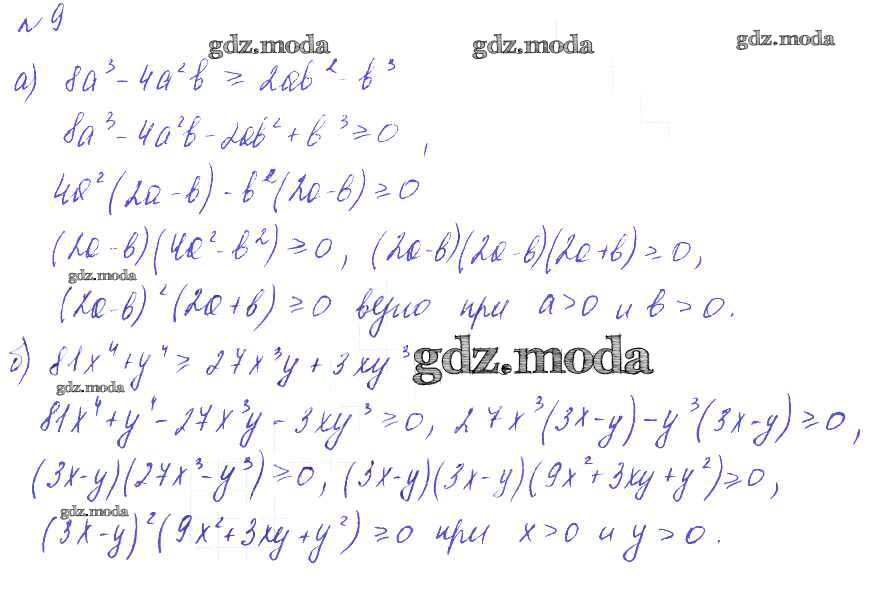 № 9
gdz.moda gdz.moda gdz.moda
а) 8a³ - 4a²b ≥ 2ab² - b³
8a³ - 4a²b - 2ab² + b³ ≥ 0,
4a²(2a - b) - b²(2a - b) ≥ 0
(2a - b)(4a² - b²) ≥ 0, (2a - b)(2a - b)(2a + b) ≥ 0,
gdz.moda
(2a - b)²(2a + b) ≥ 0 верно при a > 0 и b > 0.
б) 81x⁴ + y⁴ ≥ 27x³y + 3xy³ gdz.moda
gdz.moda
81x⁴ + y⁴ - 27x³y - 3xy³ ≥ 0, 27x³(3x - y) - y³(3x - y) ≥ 0,
(3x - y)(27x³ - y³) ≥ 0, (3x - y)(3x - y)(9x² + 3xy + y²) ≥ 0,
gdz.moda
(3x - y)²(9x² + 3xy + y²) ≥ 0 при x > 0 и y > 0.